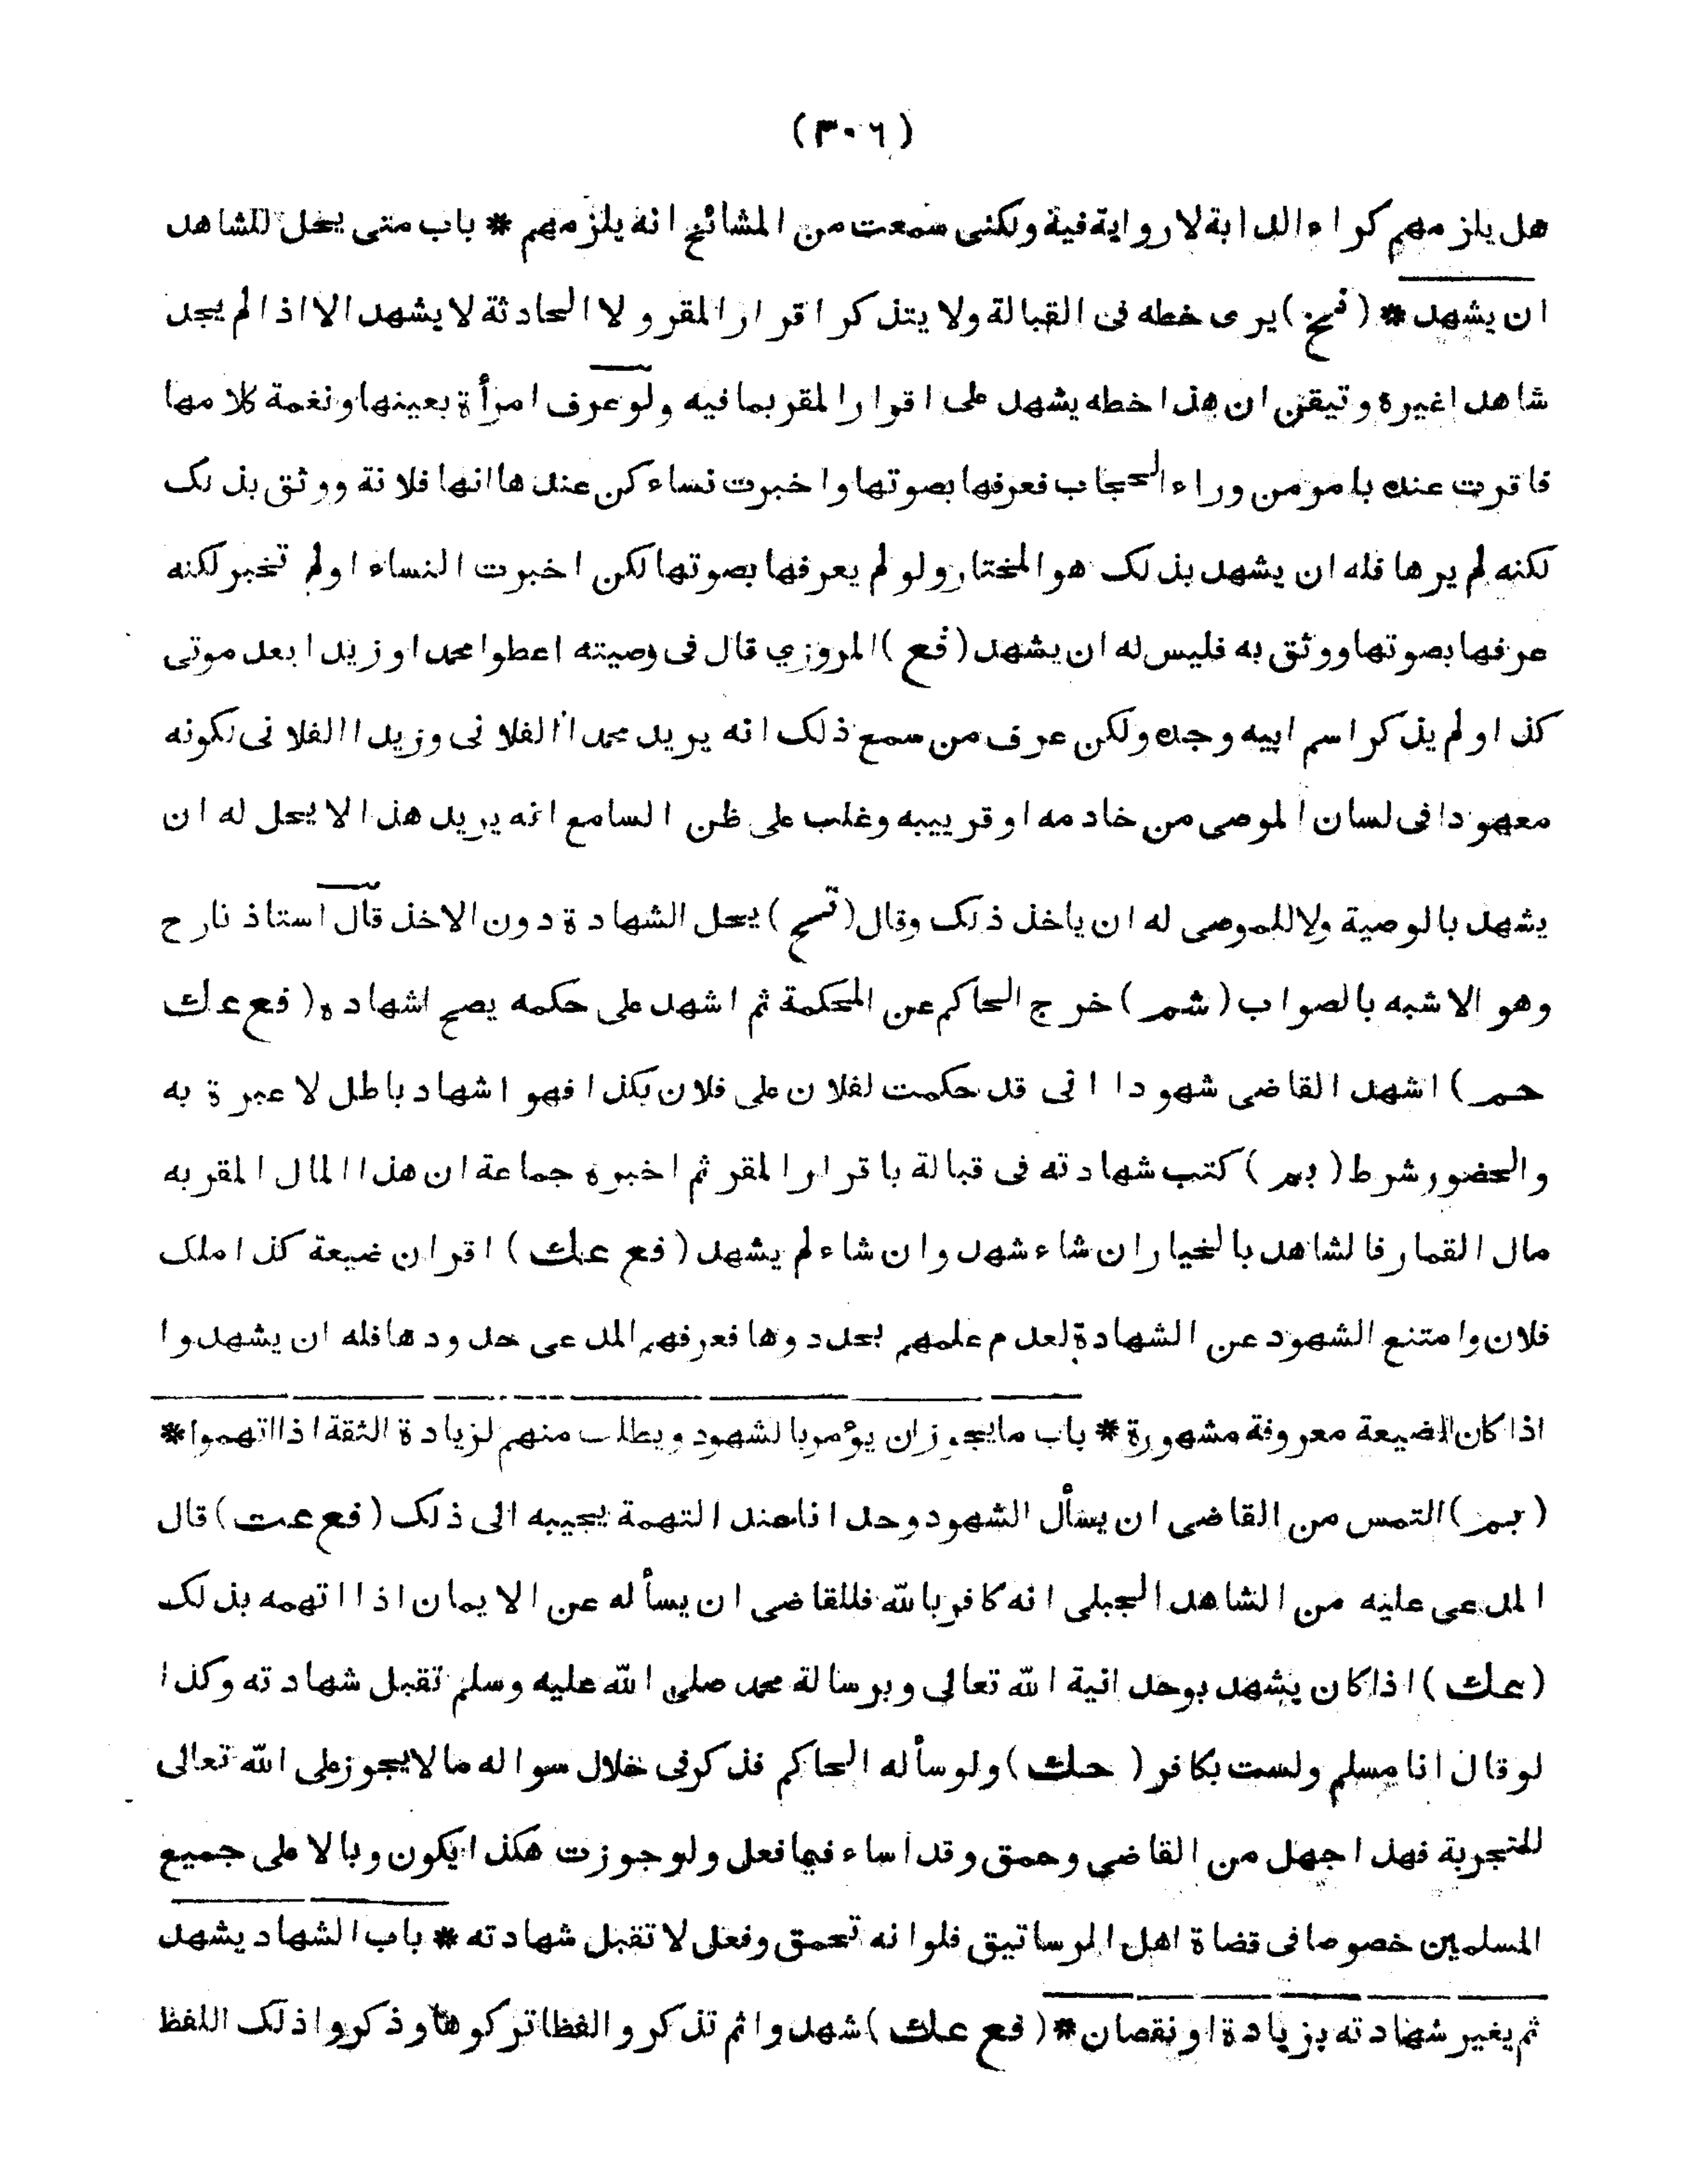 (٣٠٦)
هل يلزمهم كراء الدابة لا رواية فيه ولكني سمعت من المشائخ انه يلزمهم * باب متى يحل للشاهد
ان يشهد * (فخ) يرى خطه فى القبالة ولا يتذكر اقرار المقر ولا الحادثة لا يشهد الا اذا لم يجد
شاهدا غيره وتيقن ان هذا خطه يشهد على اقرار المقر بما فيه ولو عرف امرأة بعينها ونغمة كلامها
فاقرت عنده بامر من وراء الحجاب فعرفها بصوتها واخبرت نساء كن عندها انها فلانة ووثق بذلك
لكنه لم يرها فله ان يشهد بذلك هو المختار ولو لم يعرفها بصوتها لكن اخبرت النساء او لم تخبر لكنه
عرفها بصوتها ووثق به فليس له ان يشهد (فع) المروزي قال فى وصيته اعطوا محمدا وزيدا بعد موتى
كذا ولم يذكر اسم ابيه وجده ولكن عرف من سمع ذلك انه يريد محمدا الفلانى وزيدا الفلانى لكونه
معهودا فى لسان الموصى من خادمه او قريبه وغلب على ظن السامع انه يريد هذا لا يحل له ان
يشهد بالوصية ولا للموصى له ان ياخذ ذلك وقال (تسح) يحل الشهادة دون الاخذ قال استاذنا رح
وهو الاشبه بالصواب (شم) خرج الحاكم عن المحكمة ثم اشهد على حكمه يصح اشهاده (فع عك
حم) اشهد القاضى شهودا انى قد حكمت لفلان على فلان بكذا فهو اشهاد باطل لا عبرة به
والحضور شرط (بم) كتب شهادته فى قبالة باقرار المقر ثم اخبره جماعة ان هذا المال المقر به
مال القمار فالشاهد بالخيار ان شاء شهد وان شاء لم يشهد (فع عك) اقر ان ضيعة كذا ملك
فلان وامتنع الشهود عن الشهادة لعدم علمهم بحدودها فعرفهم المدعى حدودها فله ان يشهدوا
اذا كان الضيعة معروفة مشهورة * باب ما يجوز ان يؤمر بالشهود ويطلب منهم لزيادة الثقة اذا اتهموا *
(بم) التمس من القاضى ان يسأل الشهود وحدانا عند التهمة يجيبه الى ذلك (فع عت) قال
المدعى عليه من الشاهد الجبلى انه كافر بالله فللقاضى ان يسأله عن الايمان اذا اتهمه بذلك
(عك) اذا كان يشهد بوحدانية الله تعالى وبرسالة محمد صلى الله عليه وسلم تقبل شهادته وكذا
لو قال انا مسلم ولست بكافر (حك) ولو سأله الحاكم فذكر فى خلال سواله ما لا يجوز على الله تعالى
للتجربة فهذا جهل من القاضى وحمق وقد اساء فيما فعل ولو جوزت هكذا يكون وبالا على جميع
المسلمين خصوصا فى قضاة اهل الرساتيق فلو انه تحمق وفعل لا تقبل شهادته * باب الشهاد يشهد
ثم يغير شهادته بزيادة او نقصان * (فع عك) شهدوا ثم تذكروا لفظا تركوها وذكروا ذلك اللفظ